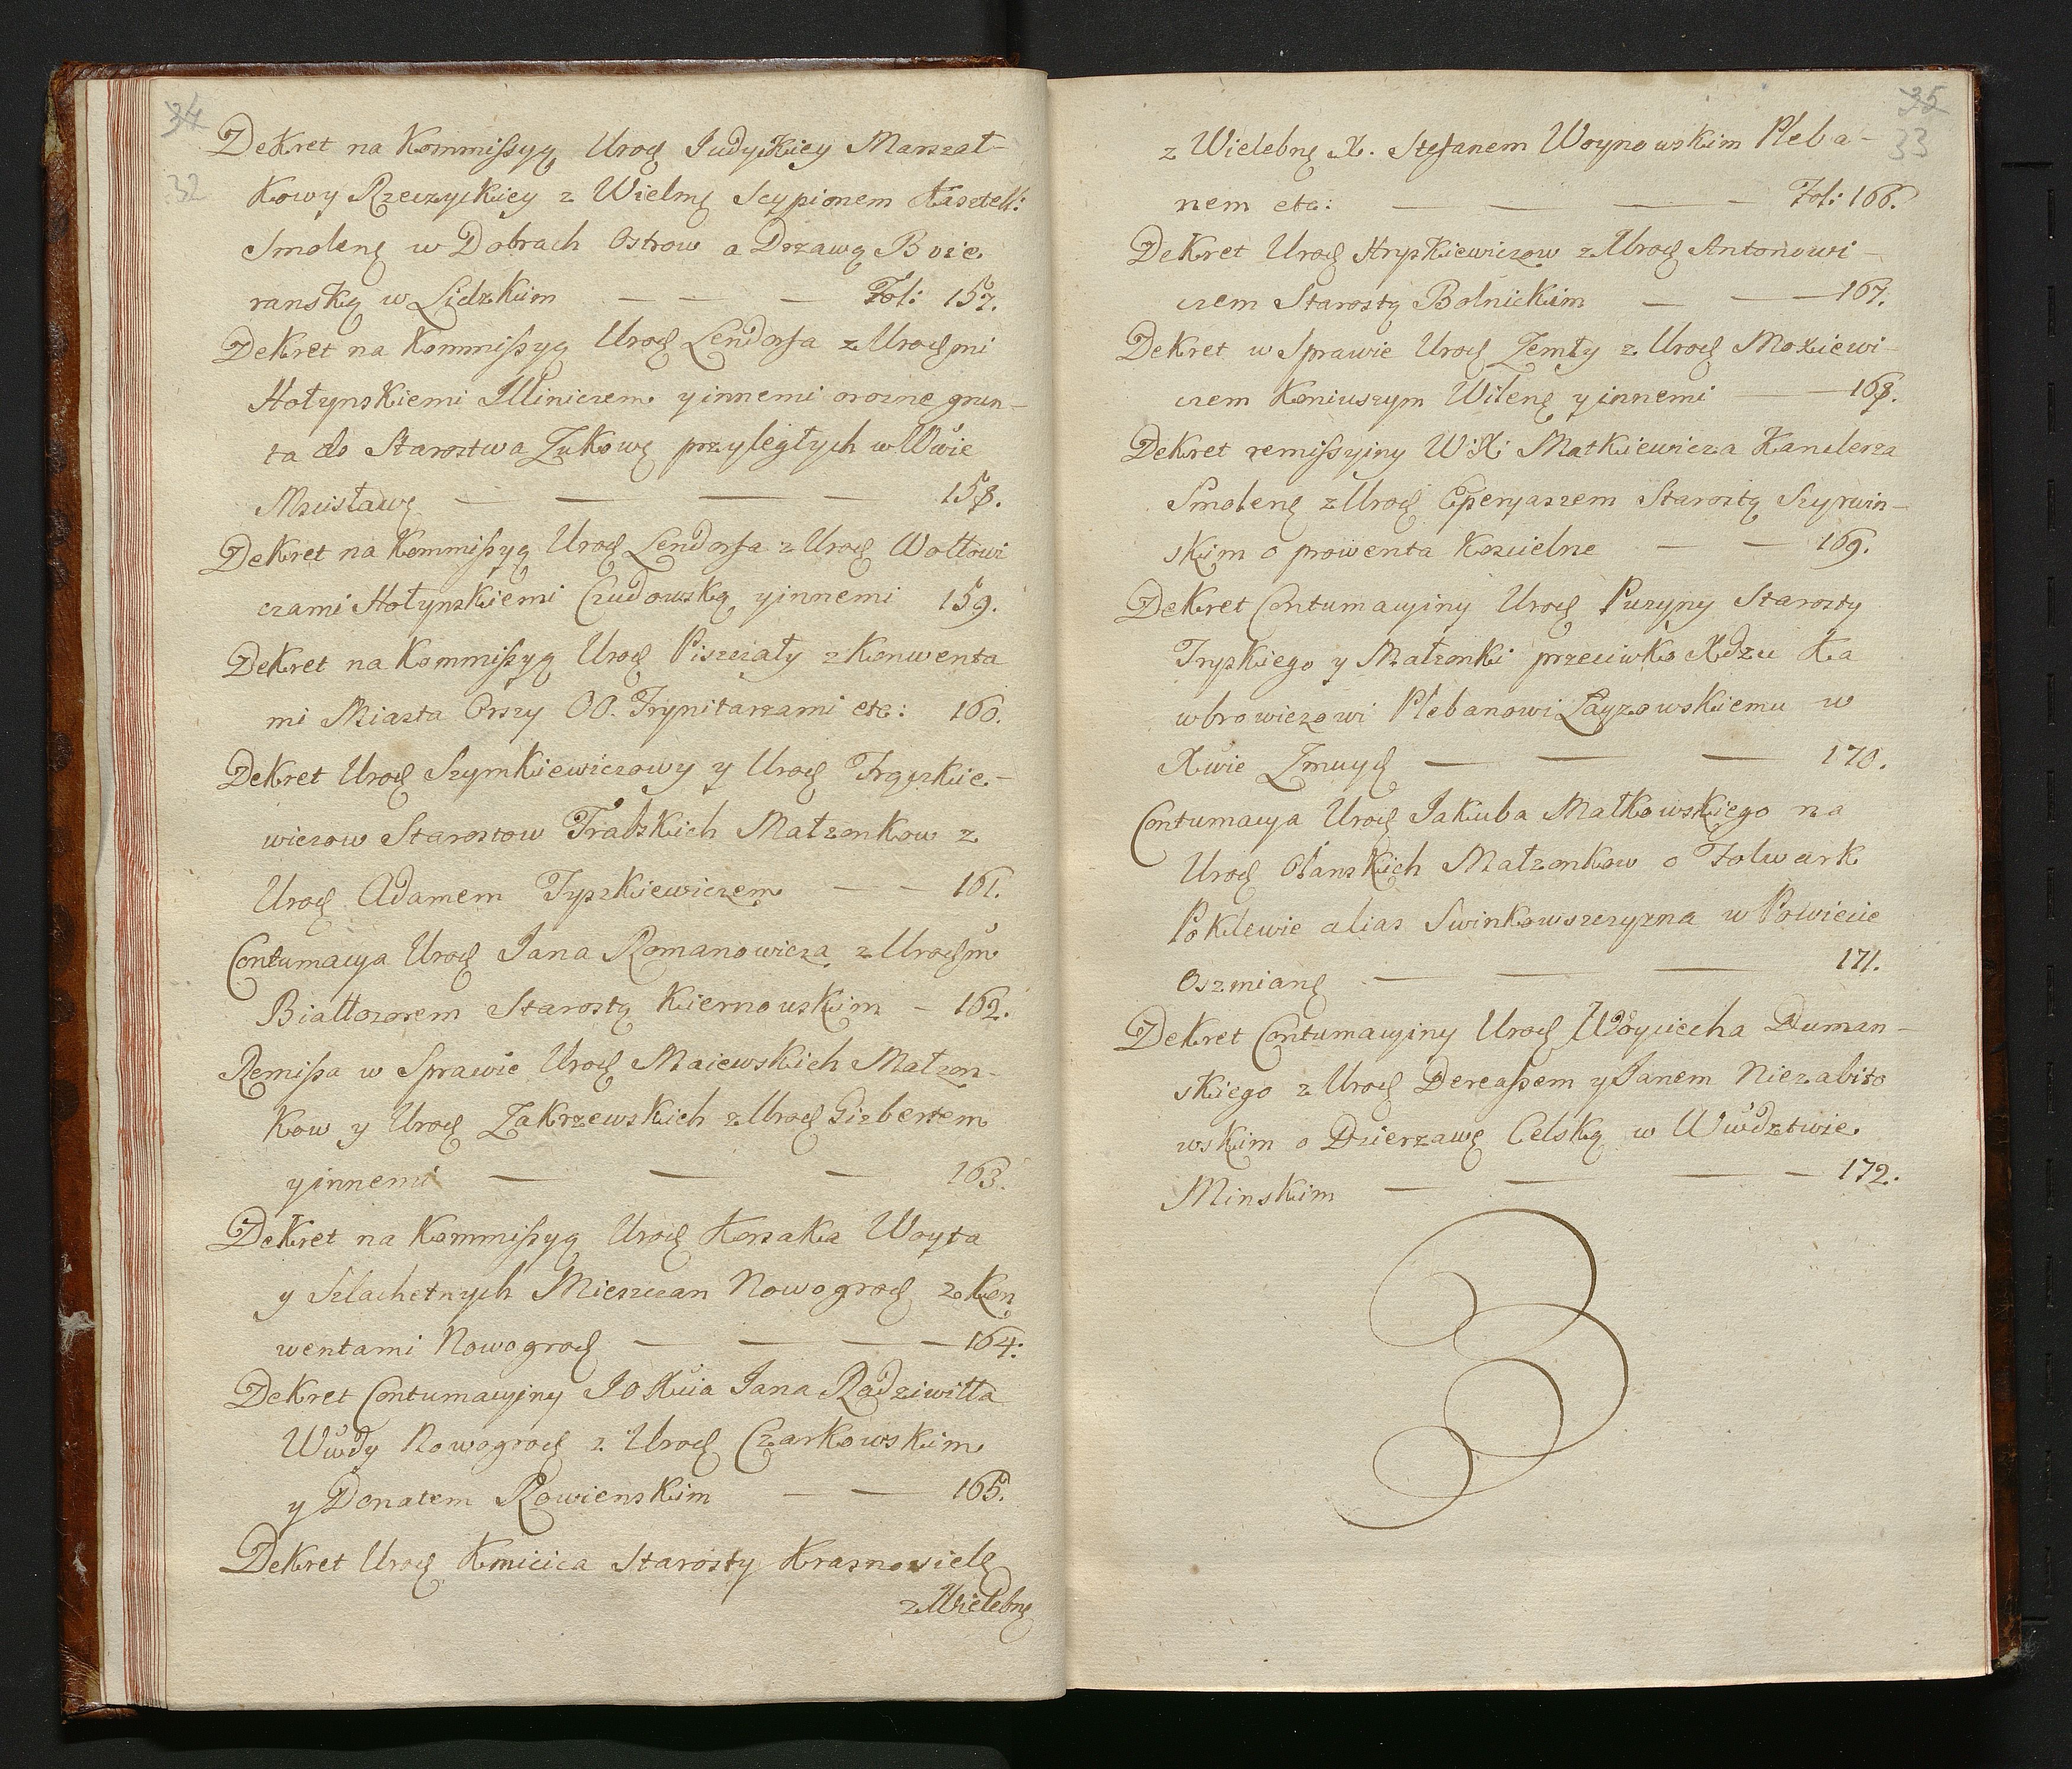 34
32
Dekret na Kommissyą Urod Judyckiey Marszał-
kowy Rzeczyckiey z Wielmę Scypionem Kasztell:
Smolenę w Dobrach Ostrow a Drzawą Boie
ranską w Lidzkim — — — Fol: 157.
Dekret na Kommissyą Urod Lendorfa z Urodzmi
Hołynskiemi Illiniczem y innemi orozne grun-
ta do Starostwa Zukowę przyległych w Wwie
Mscisławę — — — — 158.
Dekret na Kommissyą Urod Lendorfa z Urod Wołłowi
czami Hołynskiemi Czudowską y innemi 159.
Dekret na Kommissyą Urod Piszczały z Konwenta
mi Miasta Orszy OO. Trynitarzami etc: 160.
Dekret Urod Szymkiewiczowy y Urod Frąckie-
wiczow Starostow Trabskich Małzonkow z
Urod Adamem Tyszkiewiczem — — 161.
Contumacya Urod Jana Romanowicza z Urodzm
Białłozorem Starostą Kiernowskim — 162.
Remissa w Sprawie Urod Maiewskich Małzon-
kow y Urod Zakrzewskich z Urod Gizbertem
y innemi — — — 163.
Dekret na Kommissyą Urod Korsaka Woyta
y Szlachetnych Mieszczan Nowogrod z Kon
wentami Nowogrod — — — — 164:
Dekret Contumacyiny J O Xcia Jana Radziwiłła
Wwdy Nowogrod z Urod Czarkowskim
y Donatem Rowienskim — — 165.
Dekret Urod Kmicica Starosty Krasnosielę
z Wielebnę
35
33
z Wielebnę X. Stefanem Woynowskim Pleba-
nem etc: — — — — Fol: 166.
Dekret Urod Hryszkiewiczow z Urod Antonowi-
czem Starostą Bolnickim — — 167.
Dekret w Sprawie Urod Zemły z Urod Moxiewi-
czem Koniuszym Wilenę y innemi — 168.
Dekret remissyiny W: X: Matkiewicza Kanclerza
Smolenę z Urod Eperyaszem Starostą Szyrwin-
skim o prowenta Koscielne — — 169.
Dekret Contumacyiny Urod Puzyny Starosty
Tryskiego y Małzonki przeciwko Xdzu Ka
wbrowiczowi Plebanowi Łayzowskiemu w
Xwie Zmuyd — — — 170.
Contumacya Urod Jakuba Małkowskiego na
Urod Olanskich Małzonkow o Folwark
Poklewie alias Swinkowszczyzna w Powiecie
Oszmianę — — — 171.
Dekret Contumacyiny Urod Woyciecha Duman-
skiego z Urod Derecassem y Janem Niezabito
wskim o Dzierzawę Celską w Wwdztwie
Minskim — — — — 172.